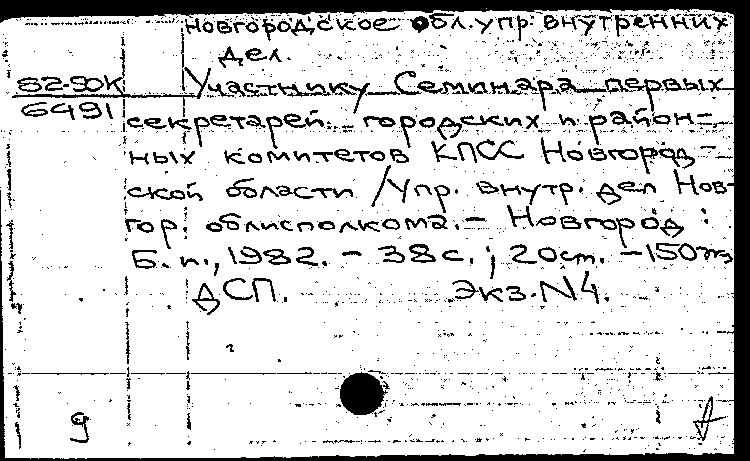 Новгородское обл. упр. внутренних
дел.
82-90К Участнику Семинара первых
6491 секретарей городских и район-
ных комитетов КПСС Новгород-
ской области / Упр. внутр. дел Нов-
гор. облисполкома. - Новгород :
Б. и., 1982. - 38 с. ; 20 ст. - 150 экз
ДСП. Экз. N 4.
9